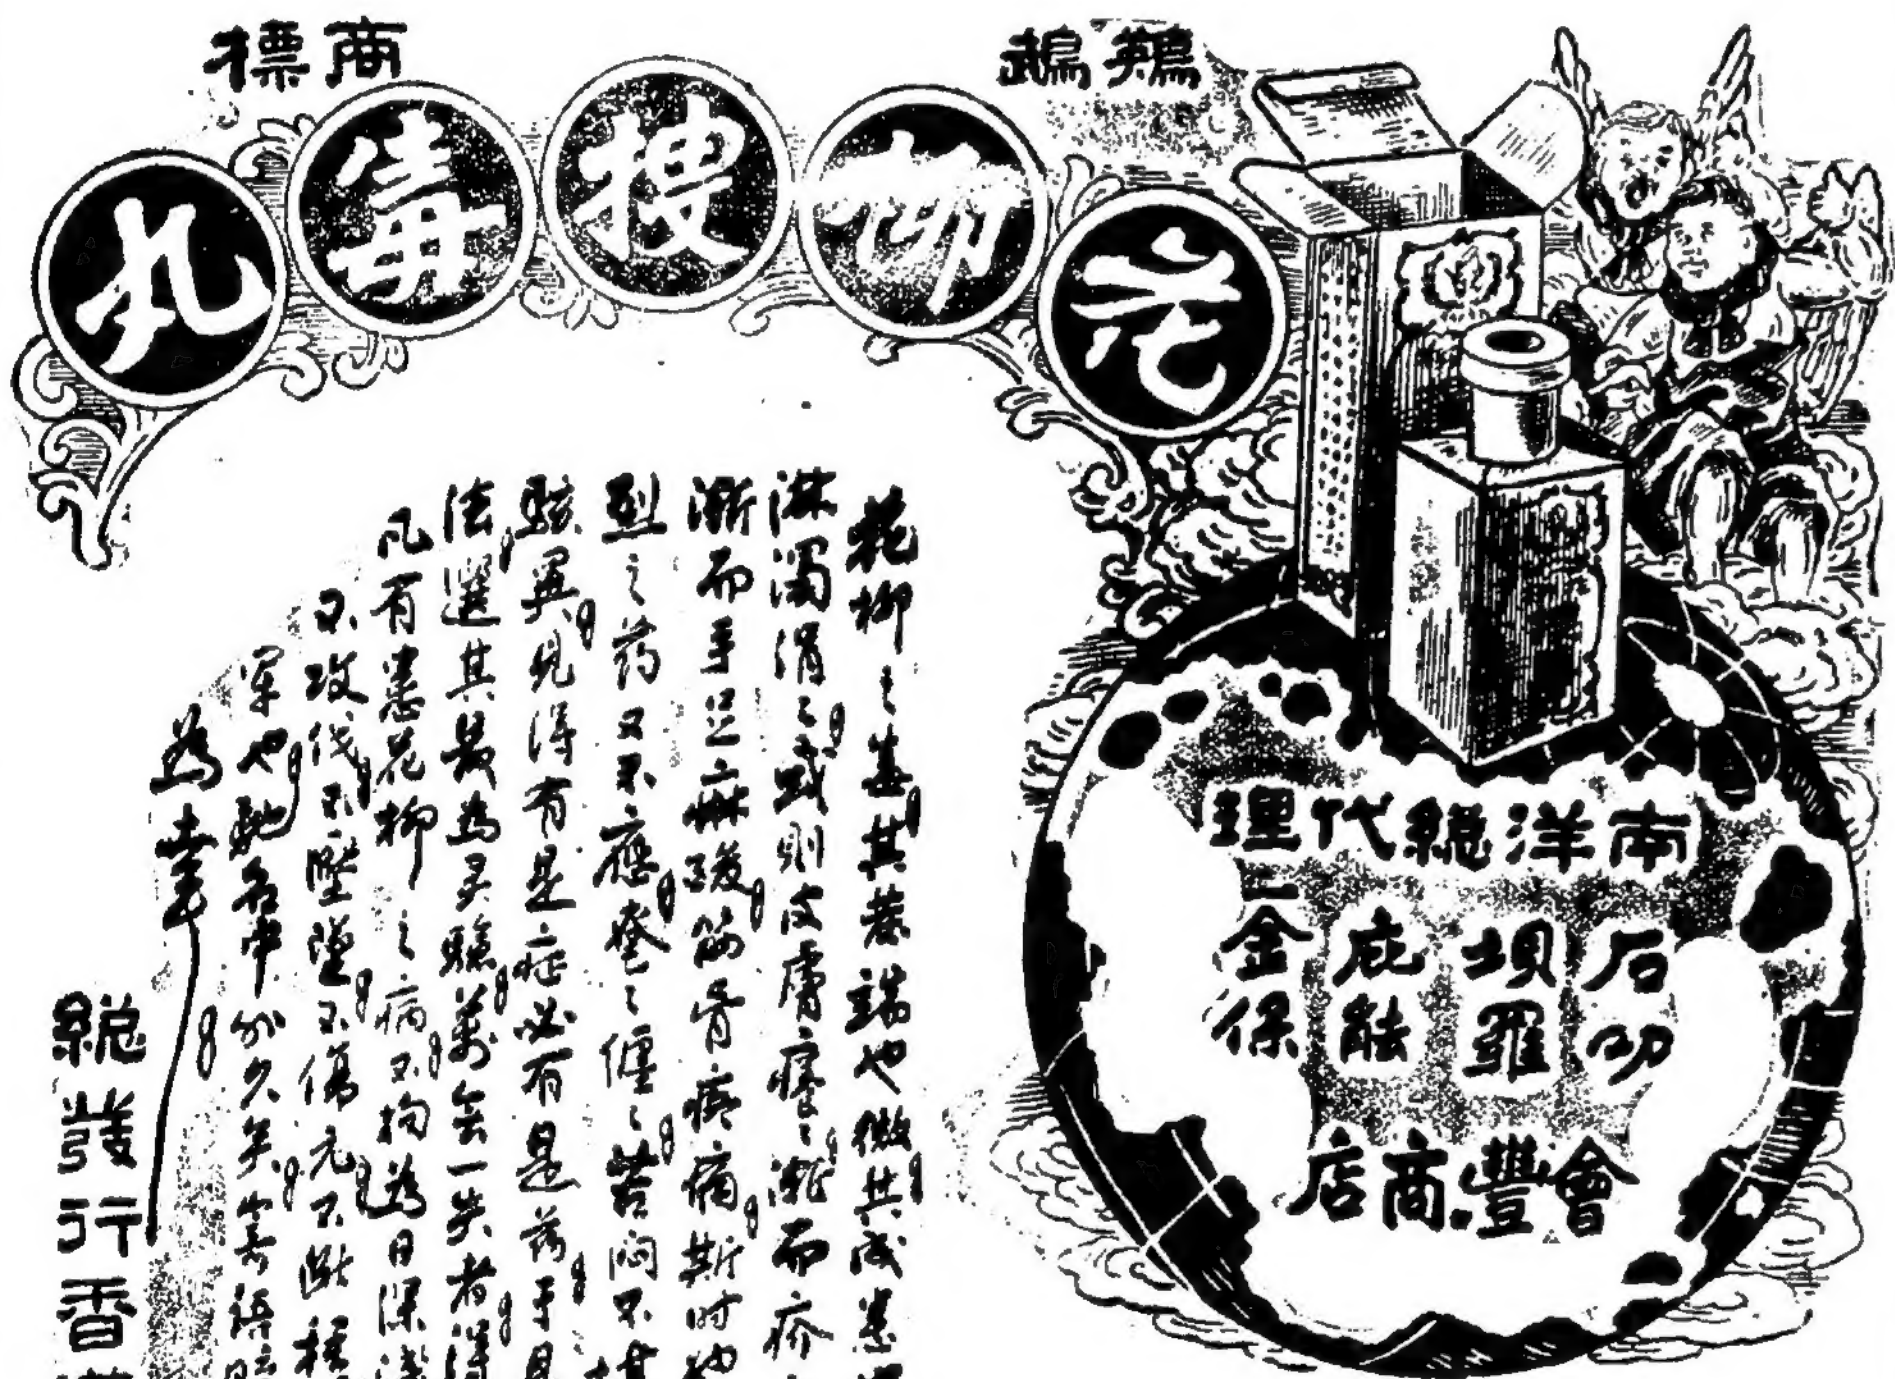 鷄鵝
商標
花柳搜毒丸
南洋總代理
石叻
坝羅
庇能
仝金保
會豐商店
花柳之毒其恭端也微其成患
淋濁涓之或則皮膚癢之漸而疥
漸而手足麻酸筋骨疼痛斯时
烈之药又不應奎之僵之苦闷不堪
駭異見得有是症必有是药于是
法選其最為灵驗萬無一失者得
凡有患花柳之病不拘為日深淺
不攻伐不墜墮不傷元不斷種
軍也馳名中外久矣寄語
為幸
總發行香港